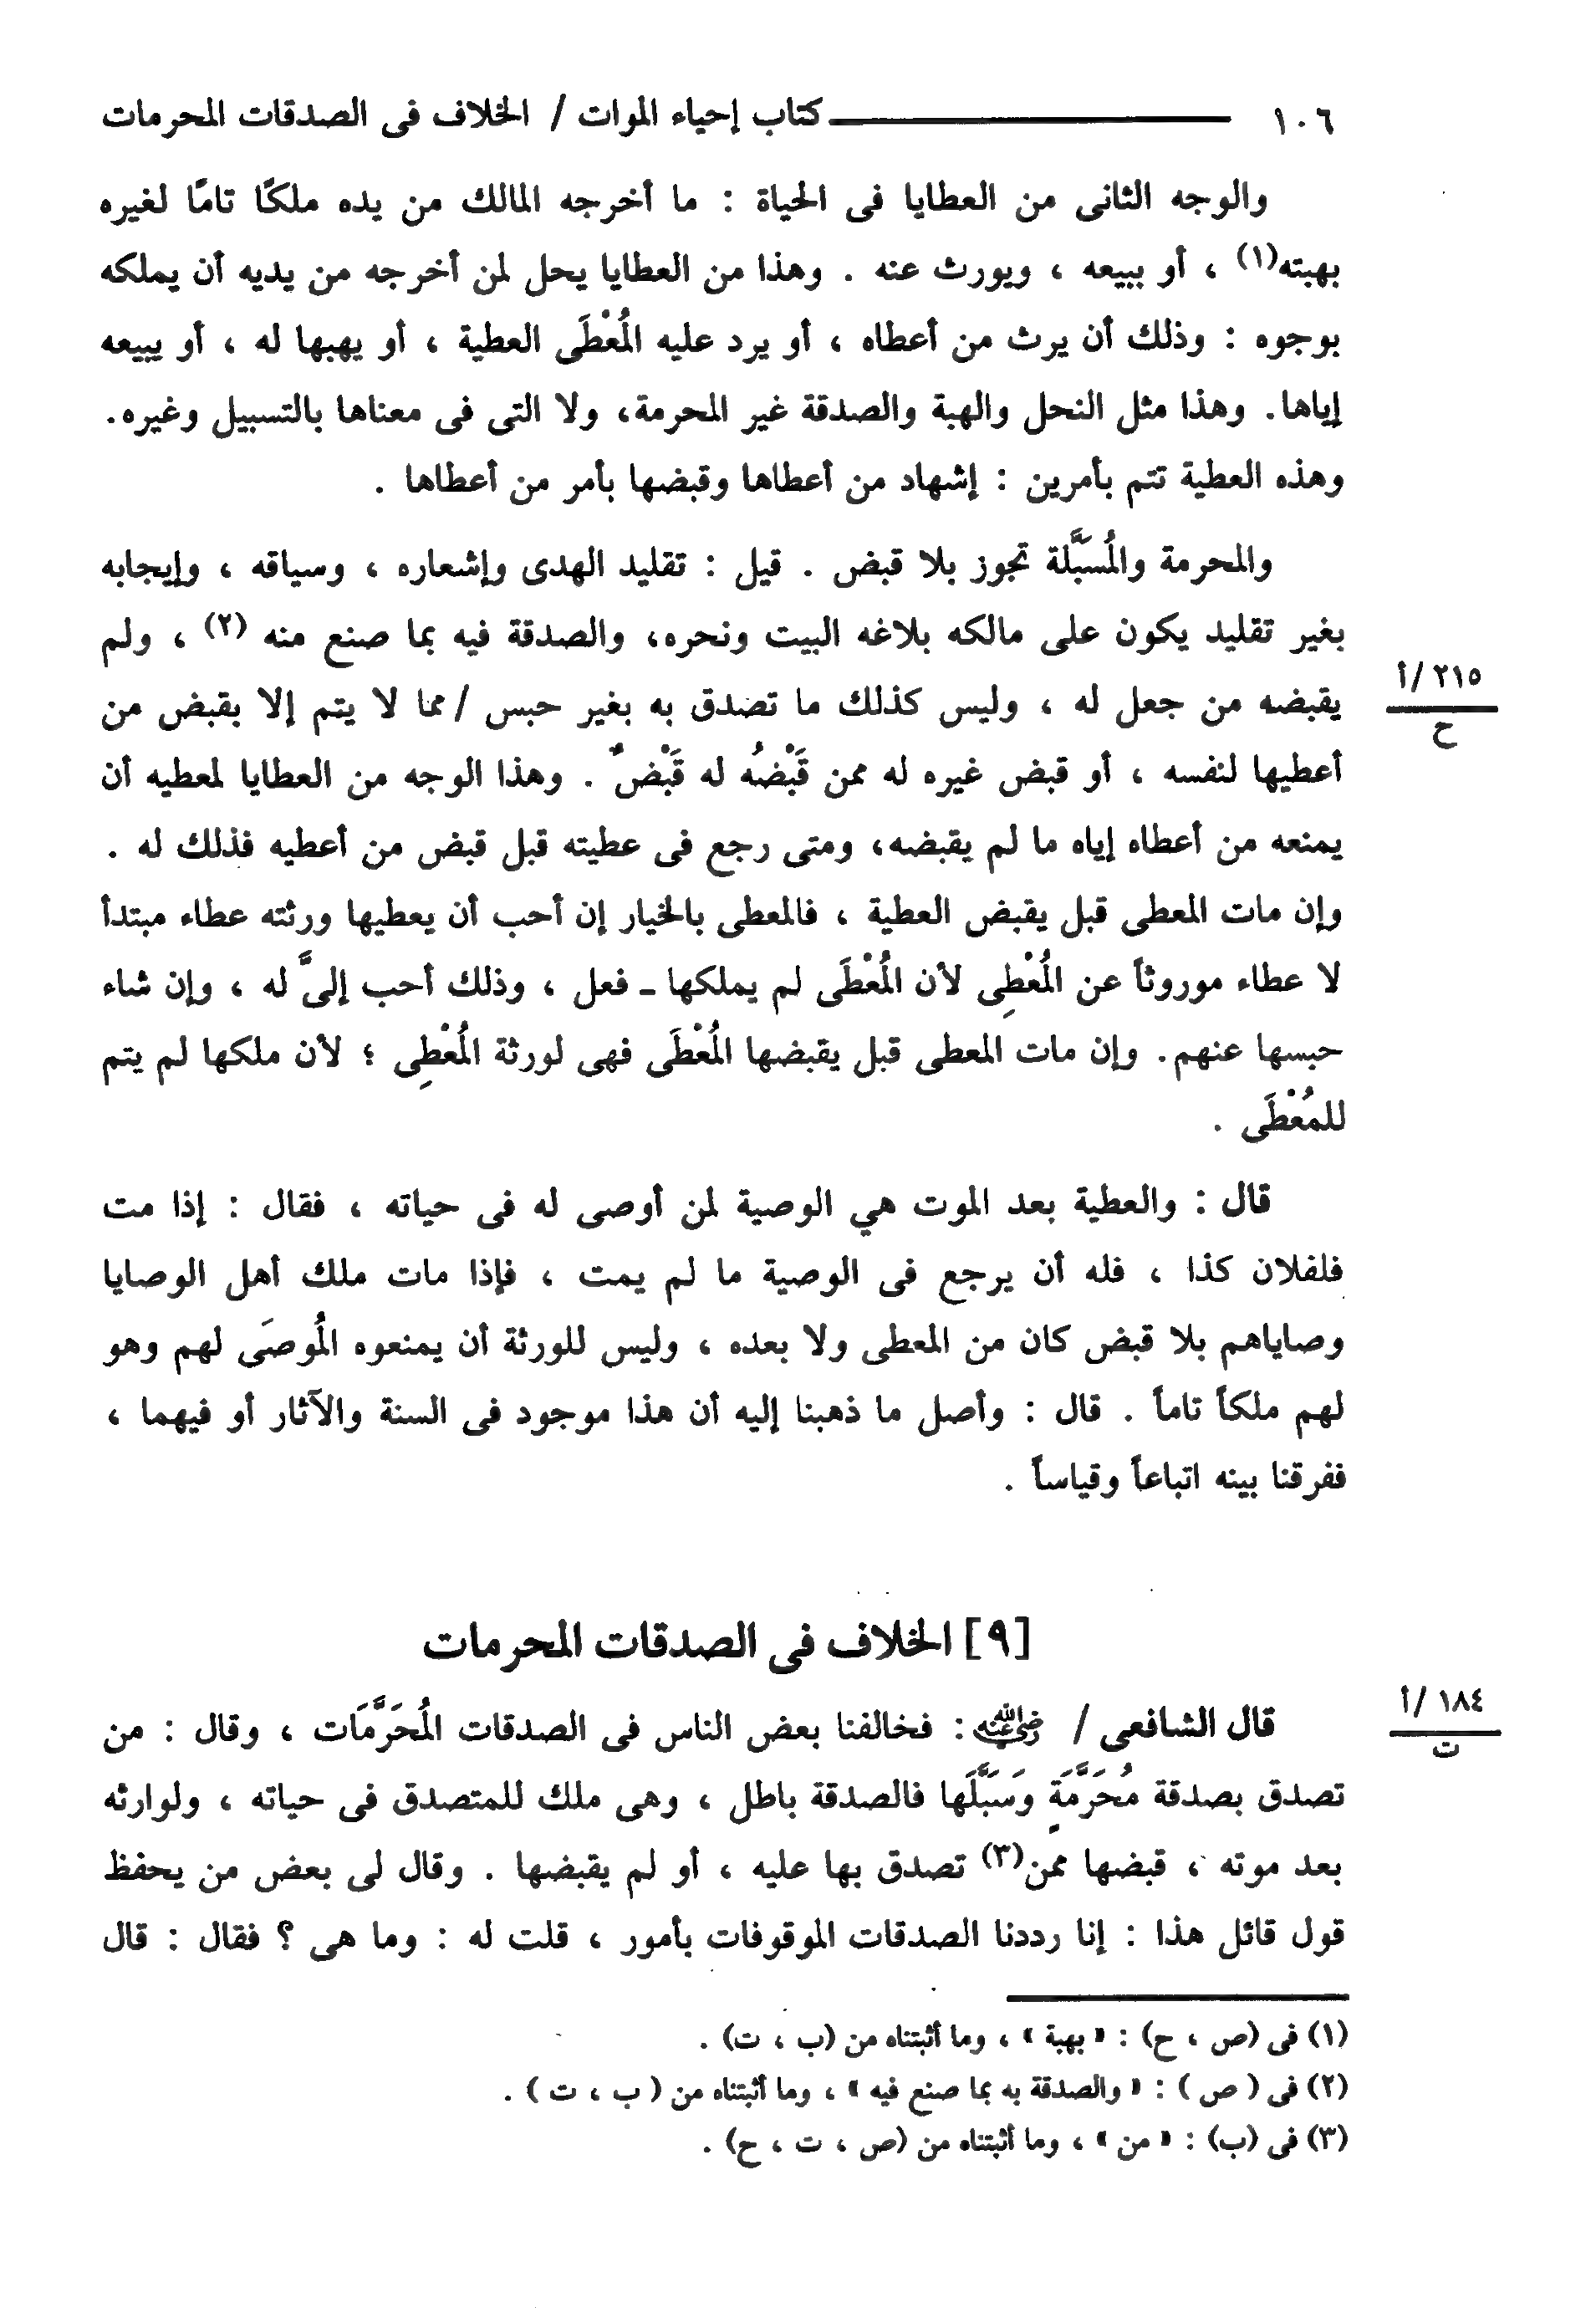 ١٠٦ كتاب إحياء الموات / الخلاف فى الصدقات المحرمات
والوجه الثانى من العطايا فى الحياة : ما أخرجه المالك من يده ملكًا تامًا لغيره
بهبته(١) ، أو ببيعه ، ويورث عنه . وهذا من العطايا يحل لمن أخرجه من يديه أن يملكه
بوجوه : وذلك أن يرث من أعطاه ، أو يرد عليه المُعْطَى العطية ، أو يهبها له ، أو يبيعه
إياها. وهذا مثل النحل والهبة والصدقة غير المحرمة، ولا التى فى معناها بالتسبيل وغيره.
وهذه العطية تتم بأمرين : إشهاد من أعطاها وقبضها بأمر من أعطاها .
والمحرمة والمُسَبَّلة تجوز بلا قبض . قيل : تقليد الهدى وإشعاره ، وسياقه ، وإيجابه
بغير تقليد يكون على مالكه بلاغه البيت ونحره، والصدقة فيه بما صنع منه (٢) ، ولم
يقبضه من جعل له ، وليس كذلك ما تصدق به بغير حبس / مما لا يتم إلا بقبض من
٢١٥ /أ
ح
أعطيها لنفسه ، أو قبض غيره له ممن قَبْضُه له قَبْضٌ . وهذا الوجه من العطايا لمعطيه أن
يمنعه من أعطاه إياه ما لم يقبضه، ومتى رجع فى عطيته قبل قبض من أعطيه فذلك له .
وإن مات المعطى قبل يقبض العطية ، فالمعطى بالخيار إن أحب أن يعطيها ورثته عطاء مبتدأ
لا عطاء موروثاً عن المُعْطِى لأن المُعْطَى لم يملكها ـ فعل ، وذلك أحب إلىَّ له ، وإن شاء
حبسها عنهم. وإن مات المعطى قبل يقبضها المُعْطَى فهى لورثة المُعْطِى ؛ لأن ملكها لم يتم
للمُعْطَى .
قال : والعطية بعد الموت هي الوصية لمن أوصى له فى حياته ، فقال : إذا مت
فلفلان كذا ، فله أن يرجع فى الوصية ما لم يمت ، فإذا مات ملك أهل الوصايا
وصاياهم بلا قبض كان من المعطى ولا بعده ، وليس للورثة أن يمنعوه المُوصَى لهم وهو
لهم ملكاً تاماً . قال : وأصل ما ذهبنا إليه أن هذا موجود فى السنة والآثار أو فيهما ،
ففرقنا بينه اتباعاً وقياساً .
[٩] الخلاف فى الصدقات المحرمات
قال الشافعى / رضي الله عنه : فخالفنا بعض الناس فى الصدقات المُحَرَّمَات ، وقال : من
١٨٤ /أ
ت
تصدق بصدقة مُحَرَّمَةٍ وَسَبَّلَها فالصدقة باطل ، وهى ملك للمتصدق فى حياته ، ولوارثه
بعد موته ، قبضها ممن(٣) تصدق بها عليه ، أو لم يقبضها . وقال لى بعض من يحفظ
قول قائل هذا : إنا رددنا الصدقات الموقوفات بأمور ، قلت له : وما هى ؟ فقال : قال
(١) فى (ص ، ح) : « بهبة » ، وما أثبتناه من (ب ، ت) .
(٢) فى ( ص ) : « والصدقة به بما صنع فيه » ، وما أثبتناه من ( ب ، ت ) .
(٣) فى (ب) : « من » ، وما أثبتناه من (ص ، ت ، ح) .